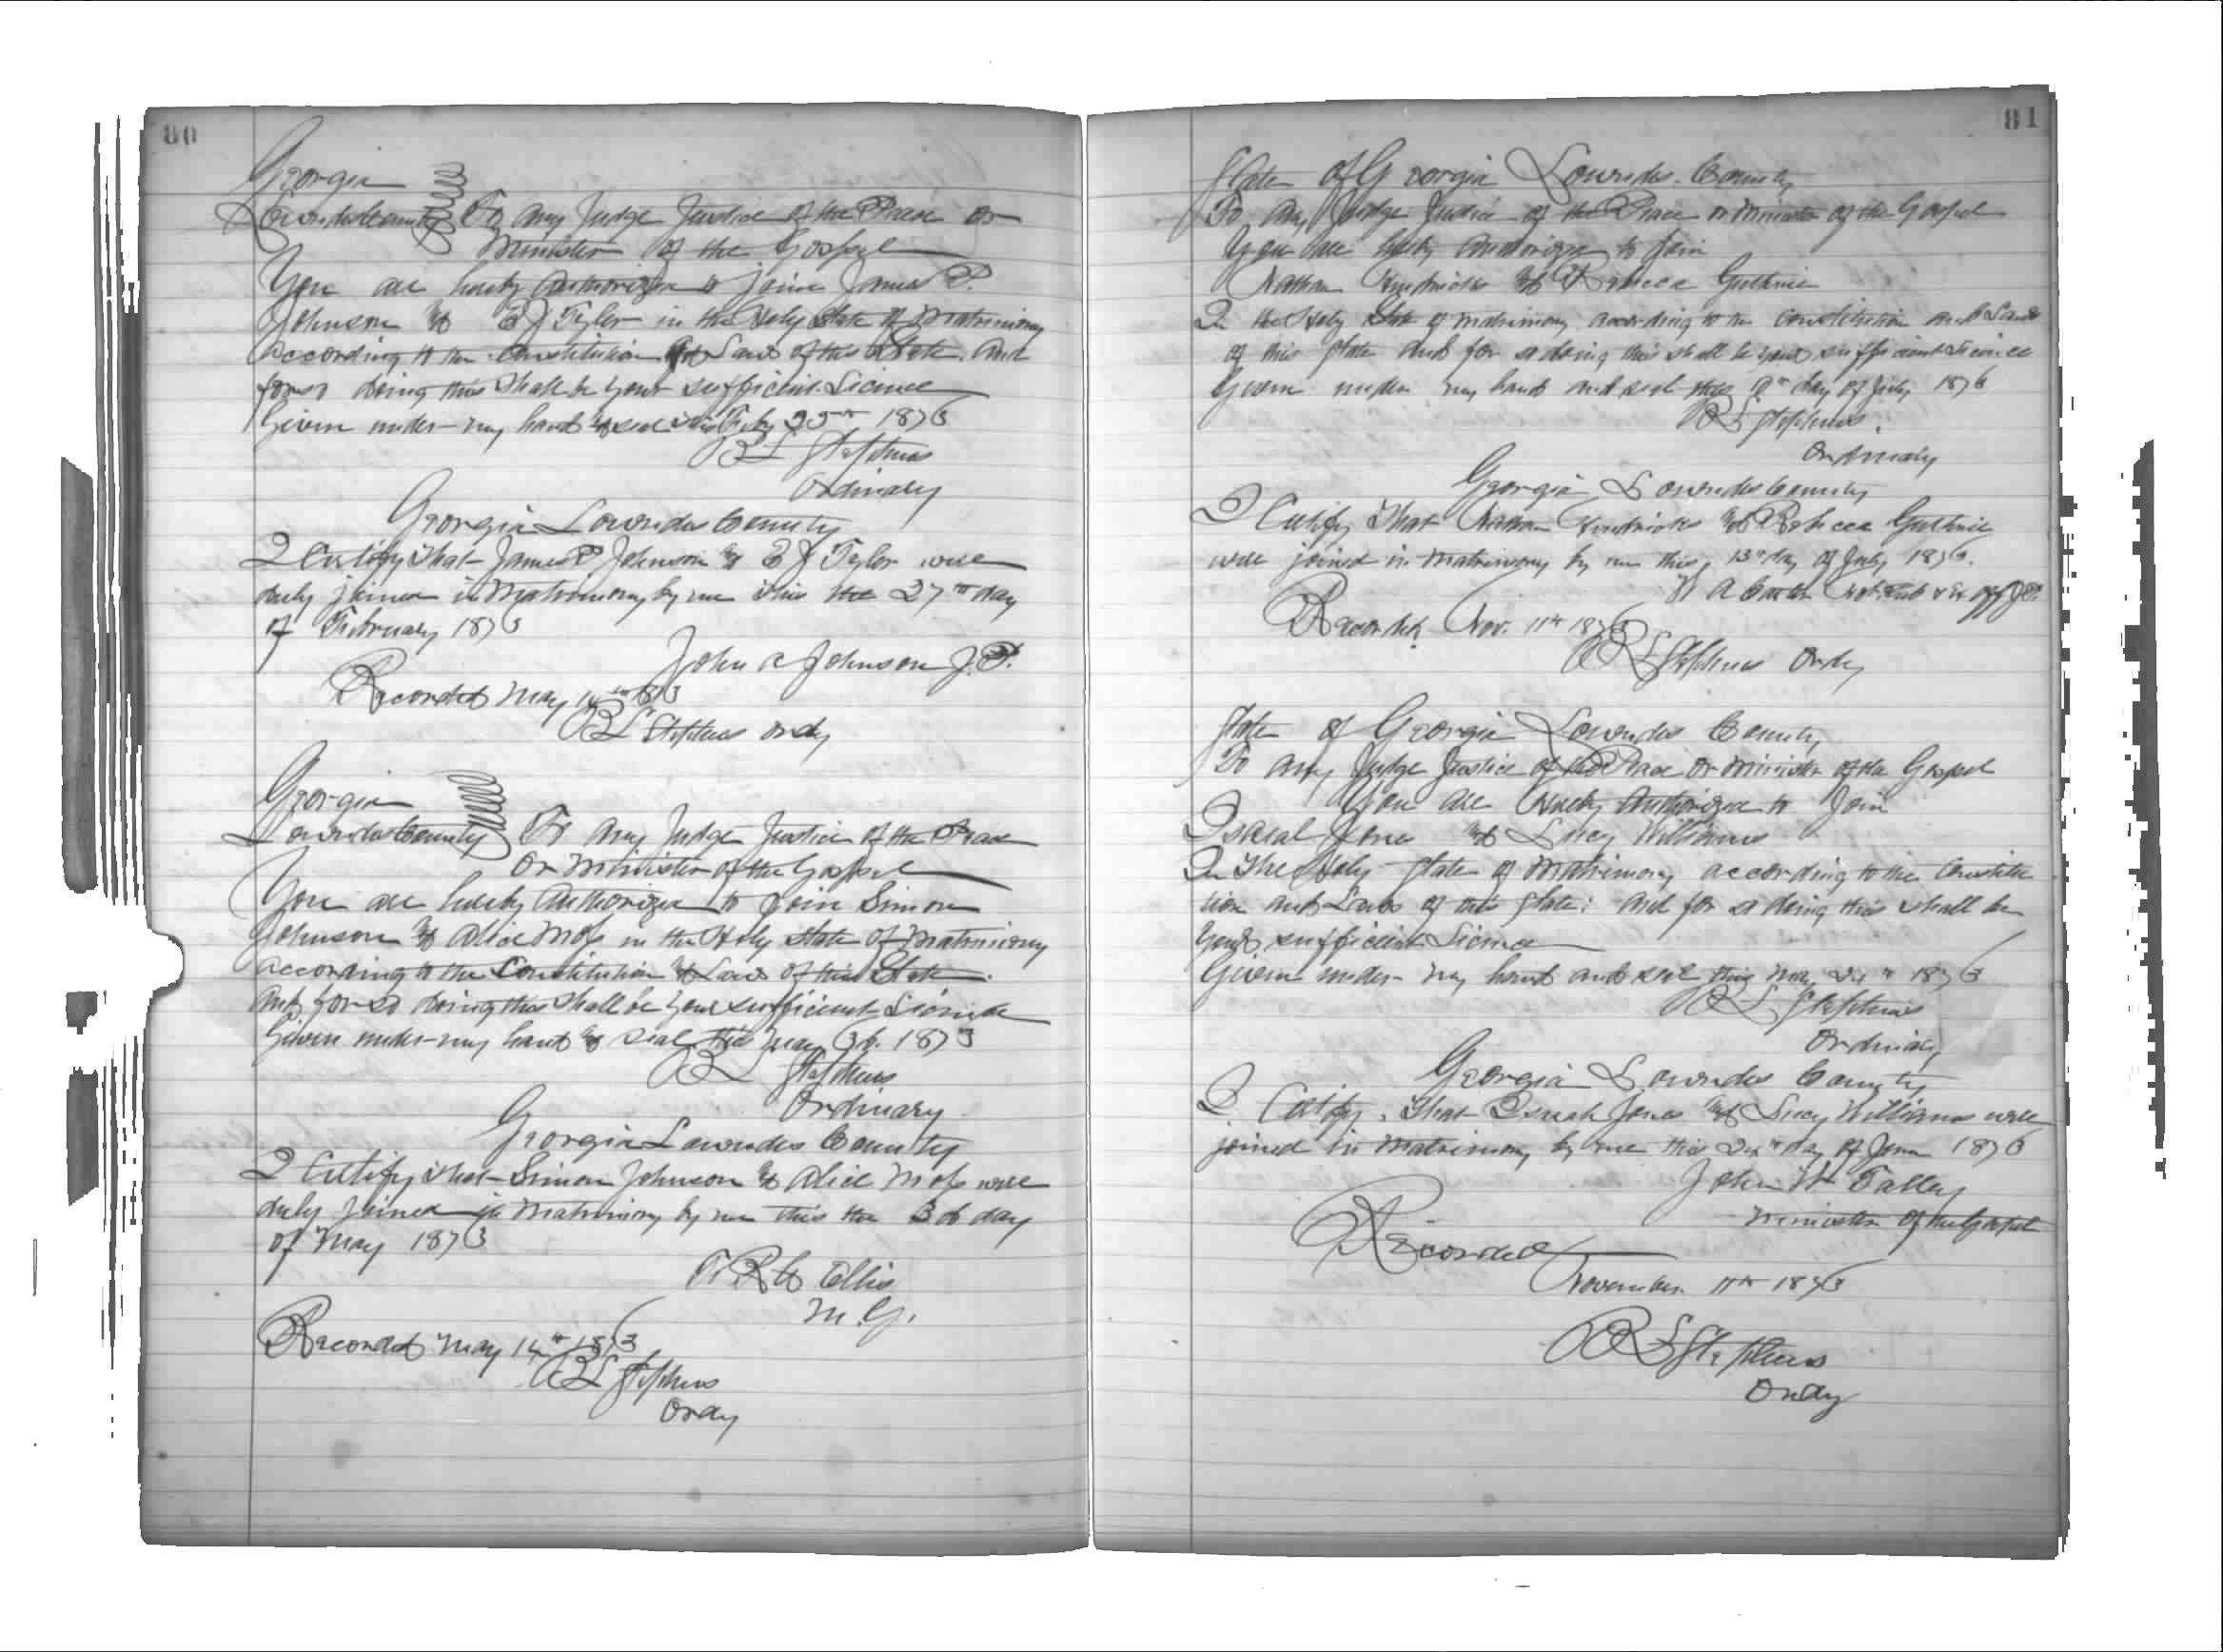 80
Georgia
Lowndes County To any Judge Justice of the Peace or
Minister of the Gospel
You are hereby Authorized to join James P.
Johnson & E J Tyler in the Holy State of Matrimony
according to the Constitution and Laws of this State. And
for so doing this shall be your sufficient License
Given under my hand & seal this Feby 25th 1873
R L Stephens
Ordinary
Georgia Lowndes County
I Certify that James P Johnson & E J Tyler were
duly joined in Matrimony by me this the 27th day
of February 1873
John A Johnson J.P.
Recorded May 14th 1873
R L Stephens Ordy
Georgia
Lowndes County To any Judge Justice of the Peace
or Minister of the Gospel
You are hereby Authorized to join Simon
Johnson & Alice Moss in the Holy State of Matrimony
according to the Constitution & Laws of this State.
And for so doing this shall be your sufficient License
Given under my hand & seal this May 3d. 1873
R L Stephens
Ordinary
Georgia Lowndes County
I Certify that Simon Johnson & Alice Moss were
duly joined in Matrimony by me this the 3d day
of May 1873
Ellis
M.G.
Recorded May 14th 1873
R L Stephens
Ordy
81
State of Georgia Lowndes County
To any Judge Justice of the Peace or Minister of the Gospel
You are hereby Authorized to join
Nathan Hendricks & Rebecca Guthrie
In the Holy State of Matrimony according to the Constitution and Laws
of this State And for so doing this shall be your sufficient License
Given under my hand and seal this 9th day of July 1873
R L Stephens
Ordinary
Georgia Lowndes County
I Certify that Nathan Hendricks & Rebecca Guthrie
were joined in Matrimony by me this 13th day of July 1873.
A Carter Not Pub & Ex off J.P.
Recorded Nov. 11th 1873
R L Stephens Ordy
State of Georgia Lowndes County
To any Judge Justice of the Peace or Minister of the Gospel
You are hereby Authorized to Join
Isreal Jones & Lucy Williams
In the Holy State of Matrimony according to the Constitu
tion and Laws of this State: And for so doing this shall be
your sufficient License
Given under my hand and seal this May 1873
R L Stephens
Ordinary
Georgia Lowndes County
I Certify that Jones & Lucy Williams were
joined in Matrimony by me this day of June 1873
John W Talley
Minister of the Gospel
Recorded
November 11th 1873
R L Stephens
Ordy